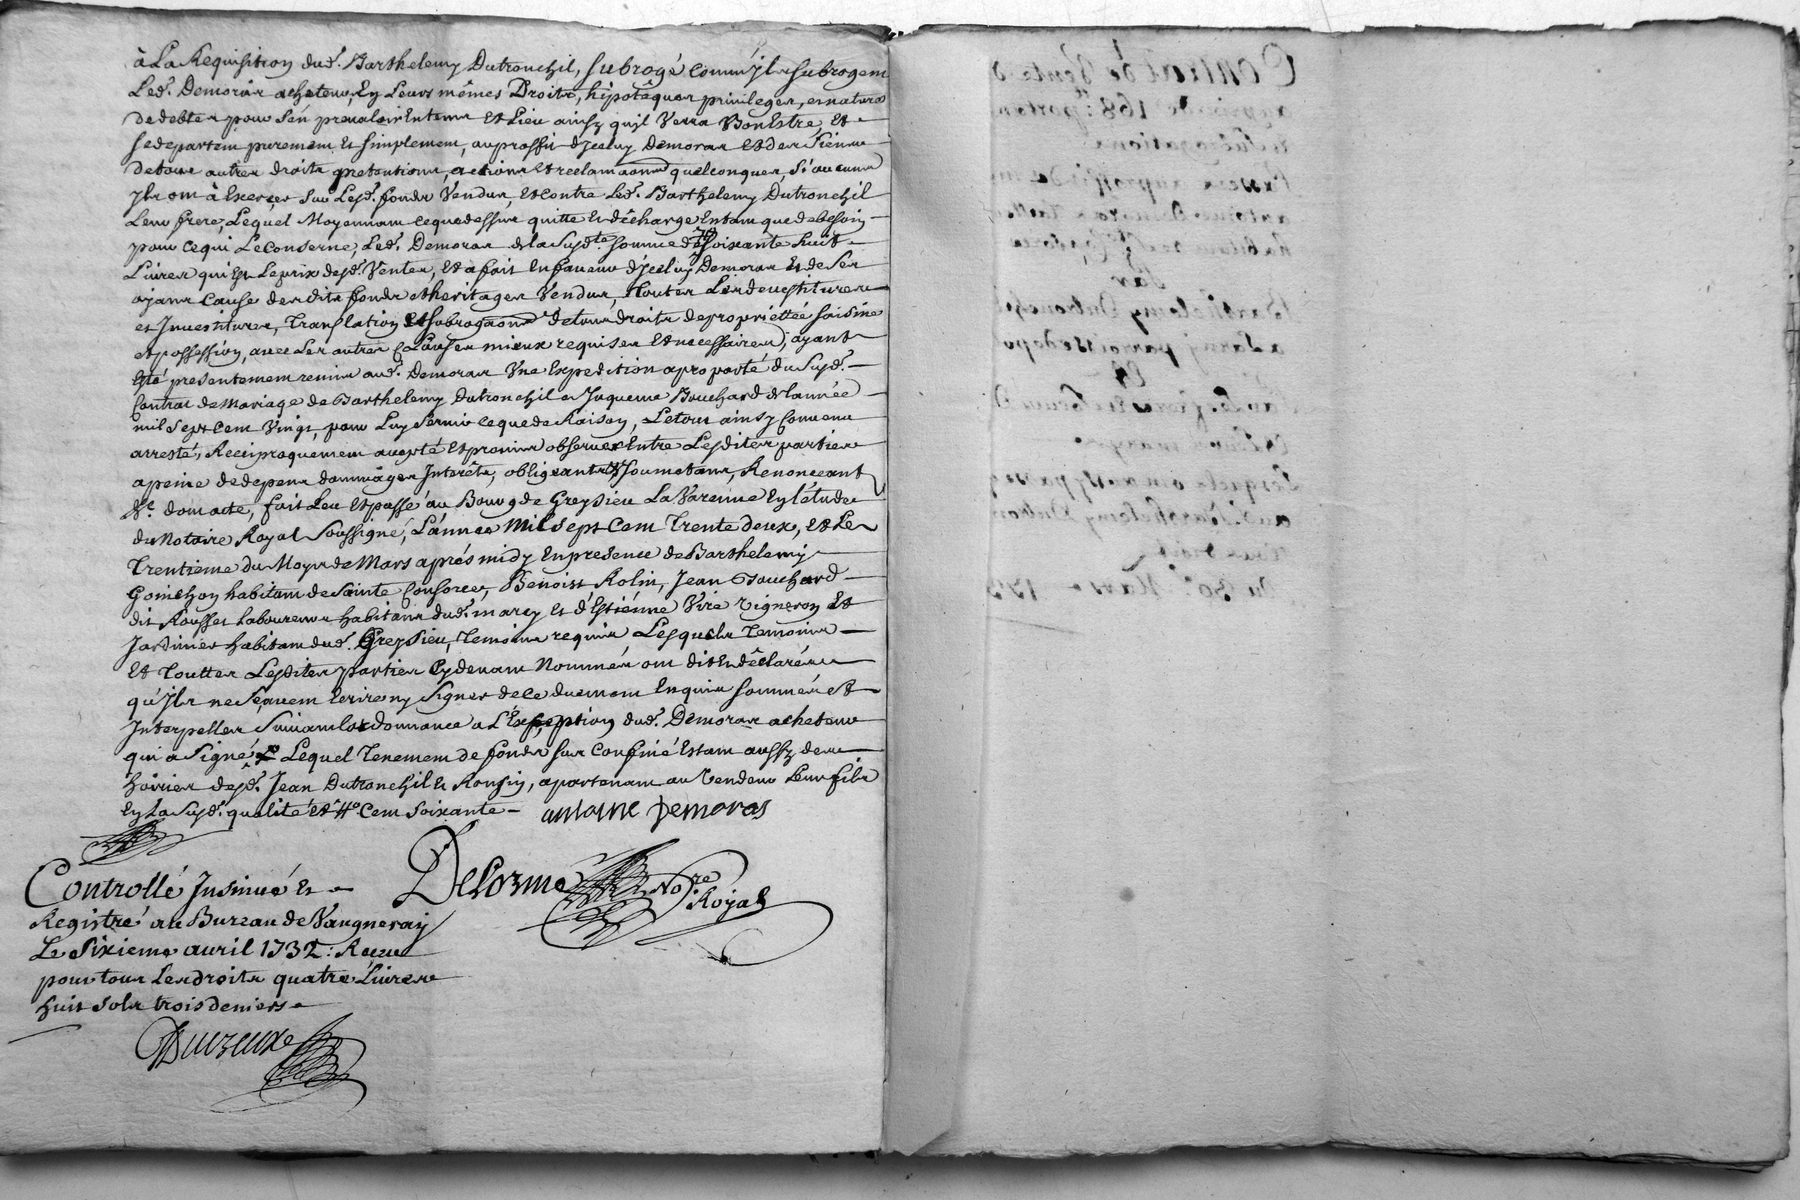 à La Requisition dud. Barthelemy Dutronchil, subrogé comm'Jls subrogem
Led. Demoras acheteur, Ey Leurs mêmes Droits, hipotêques privileges, et nature
de debtes pour s'en prevaloir Entems Et Lieu ainsy qu'jl Verra Bon Estre, Et
se departem purement Et simplement, au proffit d'jceluy Demoras Et des Siens
de tous autres droits pretentions, actions Et reclamaons quelconques, si aucuns
Jls ont à Exercer sur Lesd. fonds Vendus, Et contre Led. Barthelemy Dutronchil
Leur frere, Lequel Moyennant ce que dessus quitte Et décharge Entant que de besoin
pour ce qui Le Conserne, Led. Demoras de la susd.te somme de soixante huit
Livres qui Est Le prix desd. Ventes, Et a fait En faveur d'jceluy Demoras Et de Ses
ayans Cause desdits fonds Et heritages Vendus, Toutes Les devestitures
et Jnvestitures, Translation Et subrogaons de tous droits de proprietée saisine
et possession, avec Les autres Clauses mieux requises Et necessaires, ayant
Esté presentement remis aud. Demoras Vne Expedition aporté du susd.
Contrat de Mariage de Barthelemy Dutronchil Et Jaquema Bouchard de l'année
mil Sept Cent Vingt, pour Luy Servir ce que de Raison, Le tout ainsy Convenu
arresté, Reciproquement accepté Et promis observer Entre Lesdites parties
a peine de depens dommages Interêts, obligeants Soumetans, Renonceant
&c. dont acte, fait Leu Et passé au Bourg de Greysieu La Varenne Ey l'étude
du Notaire Royal Soussigné, L'année Mil sept Cent Trente deux, Et Le
Trentieme du Moys de Mars aprés midy En presence de Barthelemy
Goinchon habitant de Sainte Consorce, Benoist Rolin, Jean Bouchard
dit Rousset Laboureurs habitans dud. marcy Et d'Estiénne Viré Vigneron Et
Jardinier habitant dud. Greysieu, Temoins requis Lesquels Temoins
Et Touttes Lesdites parties Cy devant Nommés ont dit Et déclaré
qu'Jls ne Sçavent Ecrire ny Signer de ce duement Enquis sommés Et
Interpellés Suivant l'ordonnance a L'Exception dud. Demoras acheteur
qui a Signé Lequel Tenement de fonds sus Confiné Estant aussy des
hoiries desd. Jean Dutronchil Et Ronzin, apartenant au Vendeur Leur fils
Ey La Susd. qualité Et Cent Soixante
antoine Demoras
Delorme No.re Royal
Controllé Jnsinué Et
Registré au Bureau de Vaugneray
Le Sixieme avril 1732: Receu
pour tous Les droits quatre Livres
huit Sols trois deniers
Contrat de Vente
au prix de 168 portant
Subrogation
passé au proffit de
antoine Demoras
habitant de
Par
Barthelemy Dutronchil
a Larny parroisse de
Et
Lesquels ont
aud. Barthelemy Dutron
du 30e Mars 173